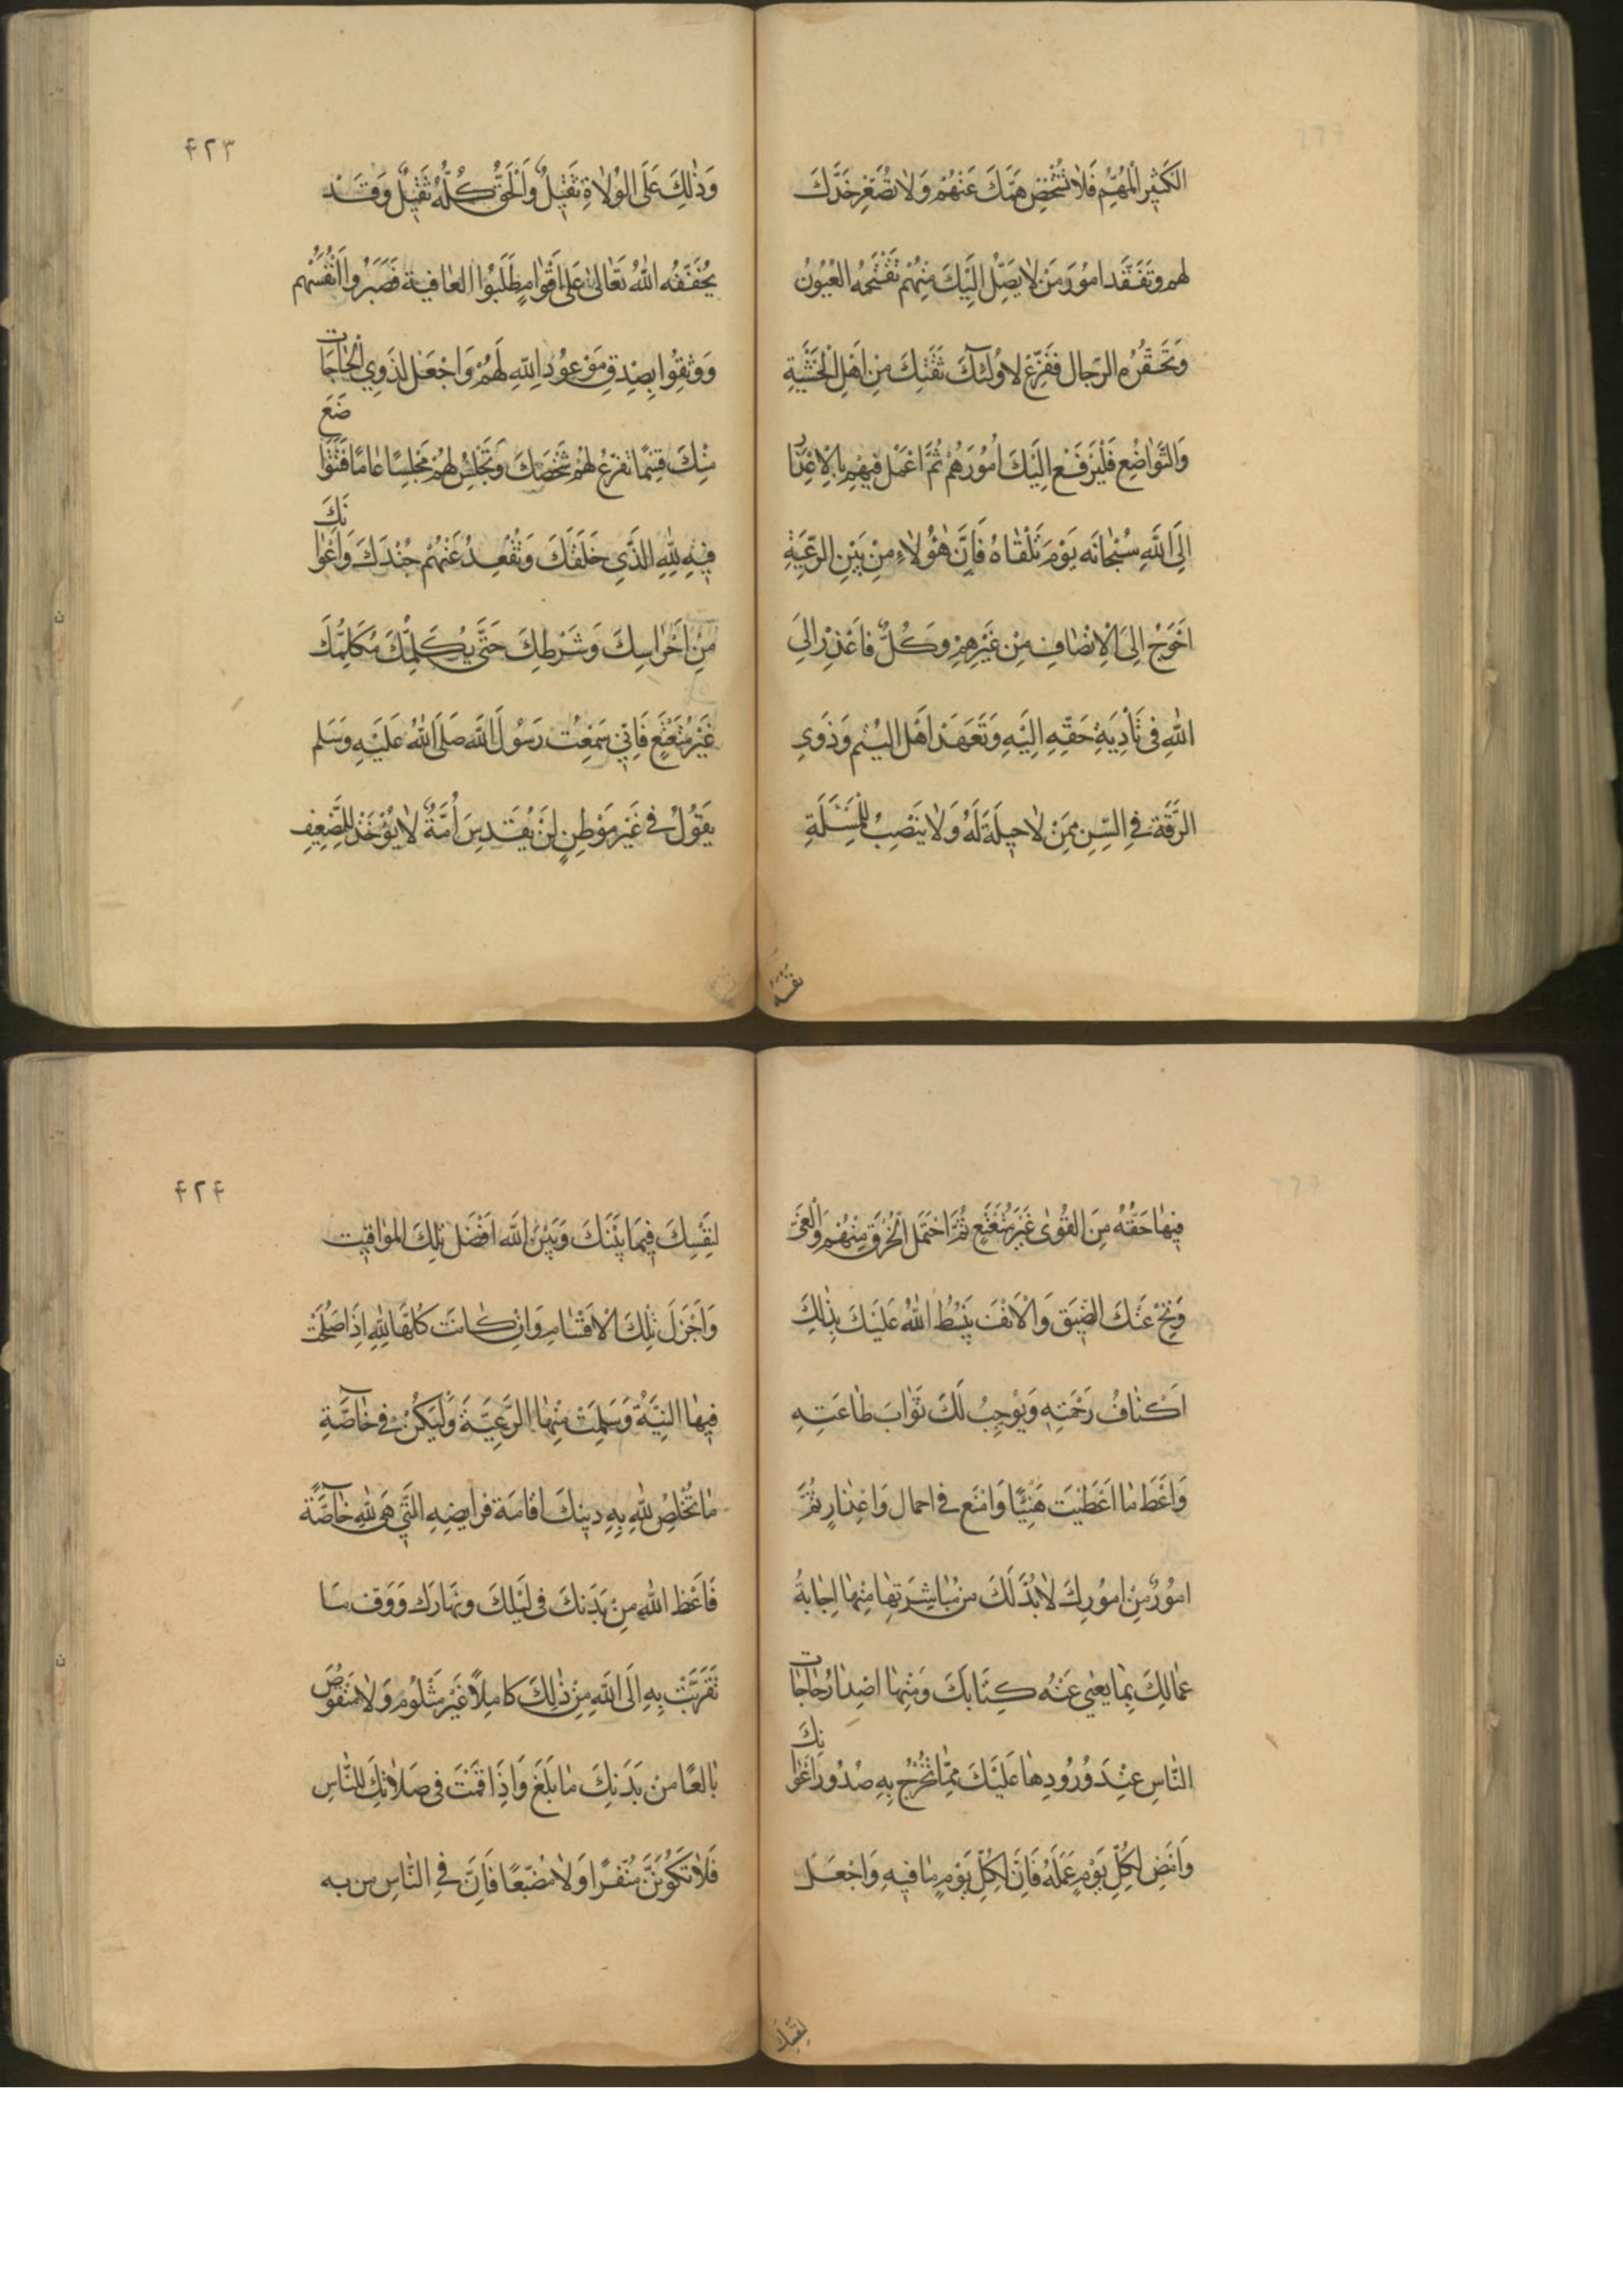 الكَثِيرَ الْمُهِمَّ فَلاٰ تُشْخِصْ هَمَّكَ عَنْهُمْ وَلاٰ تُصَعِّرْ خَدَّكَ
لهم وتَفَقَّد امُورَ مَنْ لاٰ يَصِلُ اِلَيْكَ مِنْهُمْ تَقْتَحِمُهُ العُيُونُ
وَتَحْقُرُهُ الرّجال فَفَرِّغْ لاُولٰئِكَ ثِقَتِكَ مِنْ اَهْلِ الْخَشْيَةِ
وَالتَّوٰاضُعِ فَلْيَرْفَعْ اِلَيْكَ اُمُورَهُمْ ثُمَّ اعْمَل فيهِمْ بِالاِعْذٰارِ
اِلَى اللّٰهِ سُبْحٰانَه يَوْمَ تَلْقٰاهُ فَاِنَّ هٰؤُلاٰءِ مِنْ بَيْنِ الرَّعِيَّةِ
اَحْوَجُ اِلىَ الْاِنْصٰافِ مِنْ غَيْرِهِمْ وَكُلٌّ فَاعْذِرْ اِلىَ
اللّٰهِ فى تَأْدِيَةِ حَقِّهِ اِلَيْهِ وَتَعَهَّدْ اَهْلَ اليُتْمِ وَذَوِى
الرِّقَّةِ فِى السِّنِ مِمَنْ لاٰ حيلَةَ لَهُ وَلاٰ يَنْصِبُ لِلْمَسْئَلَةِ
نَفْسَهُ
۴۲۳
وَذٰلِكَ عَلَى الوُلاٰةِ ثَقيلٌ وَالْحَقُّ كُلُّهُ ثَقيلٌ وَقَدْ
يُخَفِّفُه اللّٰهُ تَعٰالىٰ عَلىٰ اَقْوٰامٍ طَلَبُوا العٰافِيةَ فَصَبَرُوا اَنْفُسَهُم
وَوَثِقُوا بِصِدْقِ مَوْعُودِ اللّٰهِ لَهُمْ وَاجْعَلْ لِذَوِى الْحٰاجٰاتِ
مِنْكَ قِسْمًا تُفَرِّغُ لهُمْ شَخْصَكَ وَتَجْلِسُ لهُمْ مَجْلِسًا عٰامًّا فَتَتَوٰاضَعَ
فيهِ لِلّٰهِ الَّذى خَلَقَكَ وَتُقْعِدُ عَنْهُمْ جُنْدَكَ وَاَعْوٰانَكَ
مِنْ اَحْرٰاسِكَ وَشُرَطِكَ حَتَّى يُكَلِّمَكَ مُكَلِّمُكَ
غَيْرَ مُتَعْتَعٍ فَاِنّى سَمِعْتُ رَسُولَ اللّٰهِ صَلَّى اللّٰهُ عَلَيْهِ وَسَلم
يَقُولُ فى غَيْرِ مَوْطِنٍ لَنْ يُقَدَّسَ اُمَّةٌ لاٰ يُؤْخَذُ لِلضَّعِيفِ
فيهٰا حَقُّهُ مِنَ القُوٰى غَيْرَ مُتَعْتَعٍ ثُمَّ احْتَمِل الْخُرْقَ مِنْهُمْ وَالْعَىَّ
وَنَحِّ عَنْكَ الضّيقَ وَالْاَنَفَ يَبْسُطُ اللّٰهُ عَلَيْكَ بِذٰلِكَ
اَكْنٰافَ رَحْمَتِهِ وَيُوجِبُ لَكَ ثَوٰابَ طٰاعَتِهِ
وَاَعْطِ مٰا اَعْطَيْتَ هَنيئًا وَامْنَع فى اجمال وَاعْذٰارٍ ثُمَّ
امُورٌ مِنْ امُورِكَ لاٰ بُدَّ لَكَ من مُبٰاشَرَتِهٰا مِنْهٰا اِجٰابَةُ
عمّٰالِكَ بِمٰا يَعْيٰى عَنْهُ كِتٰابُكَ وَمِنْهٰا اصْدٰارُ حٰاجٰاتِ
النّٰاسِ عِنْدَ وُرُودِهٰا عَلَيْكَ مِمّٰا تَحْرَجُ بِهِ صُدُورُ اَعْوٰانِكَ
وَامْضِ لِكُلِّ يَوْمٍ عَمَلَهُ فَاِنَّ لِكُلِّ يَوْمٍ مٰا فيهِ وَاجْعَلْ
لِنَفْسِكَ
۴۲۴
لِنَفْسِكَ فيمٰا بَيْنَكَ وَبَيْنَ اللّٰهِ اَفْضَلَ تِلْكَ المَوٰاقيتِ
وَاَجْزَلَ تِلْكَ الْاَقْسٰامِ وَاِنْ كٰانَتْ كُلُّهٰا لِلّٰهِ اِذَا صَلُحَتْ
فيهٰا النِيَّةُ وَسَلِمَتْ مِنْهٰا الرَّعِيَّةُ وَلْيَكُنْ فى خٰاصَّةِ
مٰا تُخْلِصُ لِلّٰهِ بِهِ دينَكَ اقامَة فرايضِهِ الَّتى هِىَ لِلّٰهِ خٰاصَّةً
فَاَعْطِ اللّٰهَ مِنْ بَدَنِكَ فى لَيْلِكَ ونَهٰارك وَوَفِّ مٰا
تَقَرَّبْتَ بِهِ اِلَى اللّٰهِ مِنْ ذٰلِكَ كٰامِلاً غَيْرَ مَثْلُومٍ وَلاٰ مَنْقُوصٍ
بٰالِغًا مِن بَدَنِكَ مٰا بَلَغَ وَاِذَا قُمْتَ فى صَلاٰتِكَ لِلنّٰاسِ
فَلاٰ تَكُونَنَّ مُنَفِّرًا وَلاٰ مُضَيِّعًا فَاِنَّ فى النّٰاسِ من به